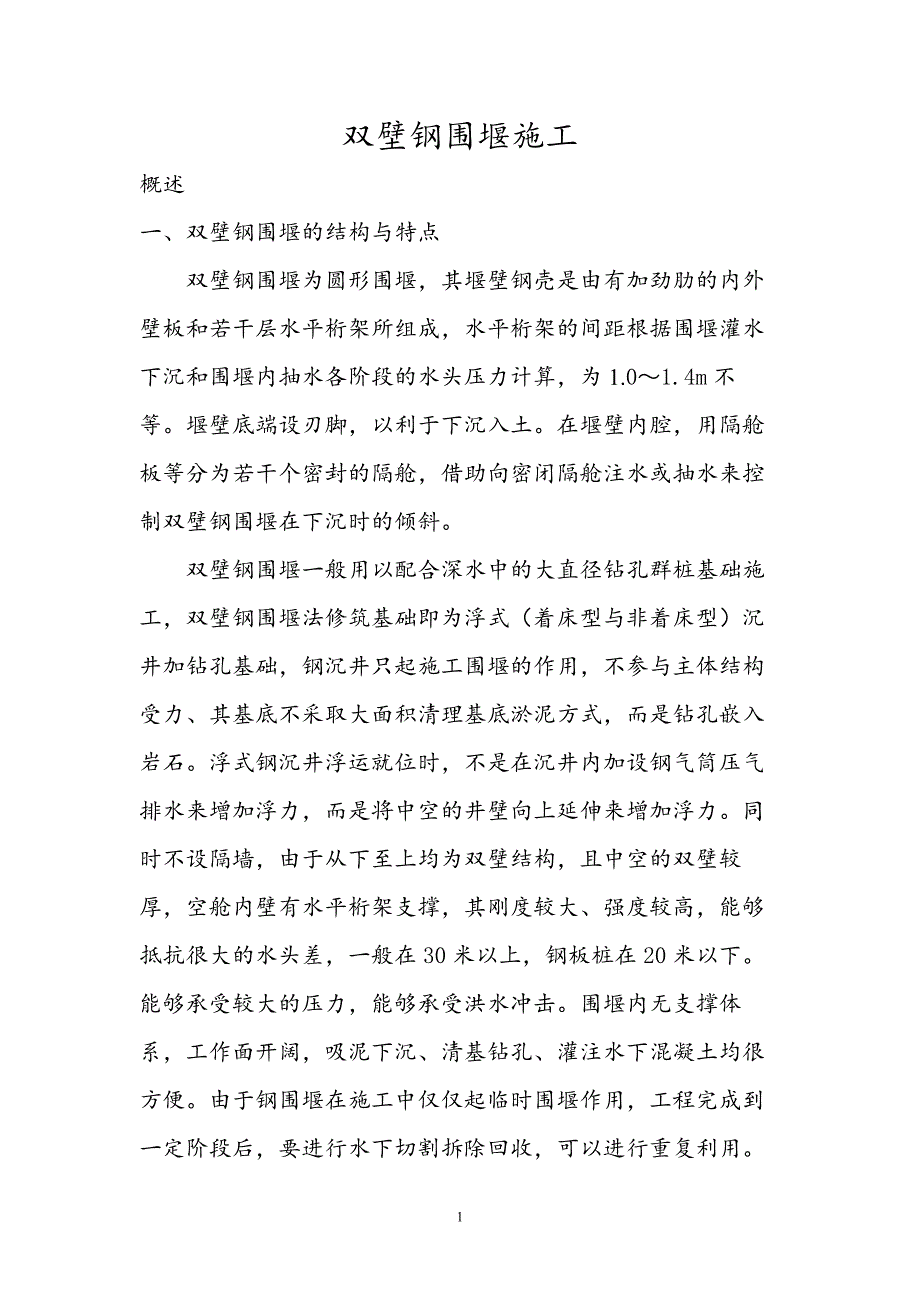 双壁钢围堰施工
概述
一、双壁钢围堰的结构与特点
双壁钢围堰为圆形围堰，其堰壁钢壳是由有加劲肋的内外
壁板和若干层水平桁架所组成，水平桁架的间距根据围堰灌水
下沉和围堰内抽水各阶段的水头压力计算，为1.0～1.4m不
等。堰壁底端设刃脚，以利于下沉入土。在堰壁内腔，用隔舱
板等分为若干个密封的隔舱，借助向密闭隔舱注水或抽水来控
制双壁钢围堰在下沉时的倾斜。
双壁钢围堰一般用以配合深水中的大直径钻孔群桩基础施
工，双壁钢围堰法修筑基础即为浮式（着床型与非着床型）沉
井加钻孔基础，钢沉井只起施工围堰的作用，不参与主体结构
受力、其基底不采取大面积清理基底淤泥方式，而是钻孔嵌入
岩石。浮式钢沉井浮运就位时，不是在沉井内加设钢气筒压气
排水来增加浮力，而是将中空的井壁向上延伸来增加浮力。同
时不设隔墙，由于从下至上均为双壁结构，且中空的双壁较
厚，空舱内壁有水平桁架支撑，其刚度较大、强度较高，能够
抵抗很大的水头差，一般在30米以上，钢板桩在20米以下。
能够承受较大的压力，能够承受洪水冲击。围堰内无支撑体
系，工作面开阔，吸泥下沉、清基钻孔、灌注水下混凝土均很
方便。由于钢围堰在施工中仅仅起临时围堰作用，工程完成到
一定阶段后，要进行水下切割拆除回收，可以进行重复利用。
1